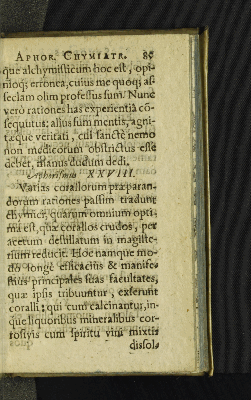 APHOR. CHYMIATR. 85
que alchymisticum hoc est, opi-
nioq; erronea, cuius me quoq; as
seclam olim professus sum. Nunc
verò rationes has experientiâ cō-
sequutus, alius sum mentis, agni-
tæque veritati, cui sanctè nemo
non medicorum obstrictus esse
debet, manus dudum dedi.
Aphorismus XXVIII.
Varias corallorum præparan-
dorum rationes passim tradunt
chymici, quarum omnium opti-
ma est, quæ corallos crudos, per
acetum destillatum in magiste-
rium reducit. Hoc namque mo-
do longè efficacius & manifes-
tius principales suas facultates,
quæ ipsis tribuuntur, exserunt
coralli; qui cum calcinantur, in-
que liquoribus mineralibus cor-
rosivis cum spiritu vini mixtis
dissol-